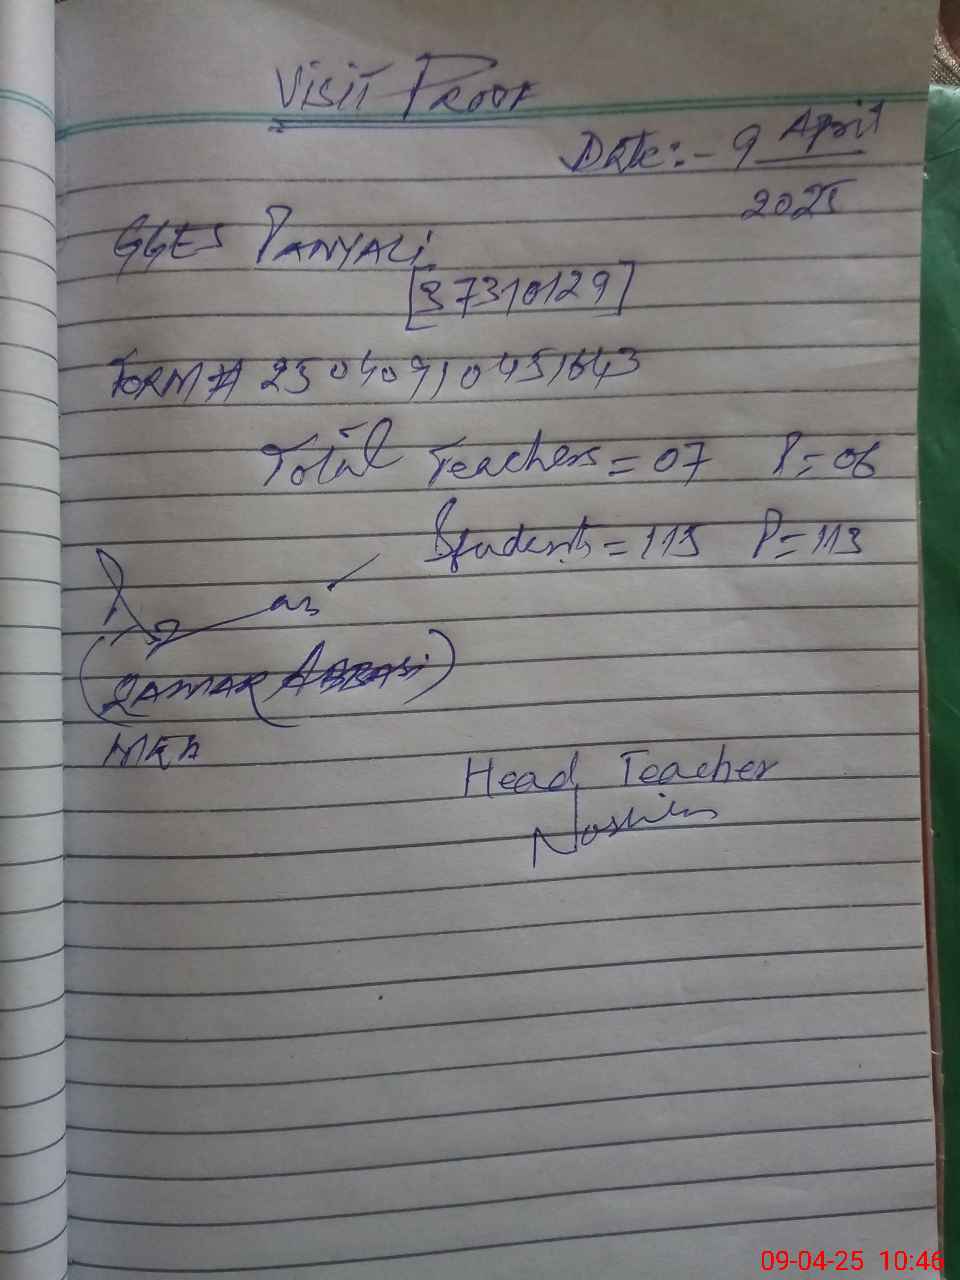 Visit Proof
Date:- 9 April
2025
GGES PANYALi
[37310129]
FORM# 25040910451643
Total Teachers = 07 P= 06
Students = 115 P= 113
(QAMAR ABBASi)
MEA
Head Teacher
09-04-25 10:46